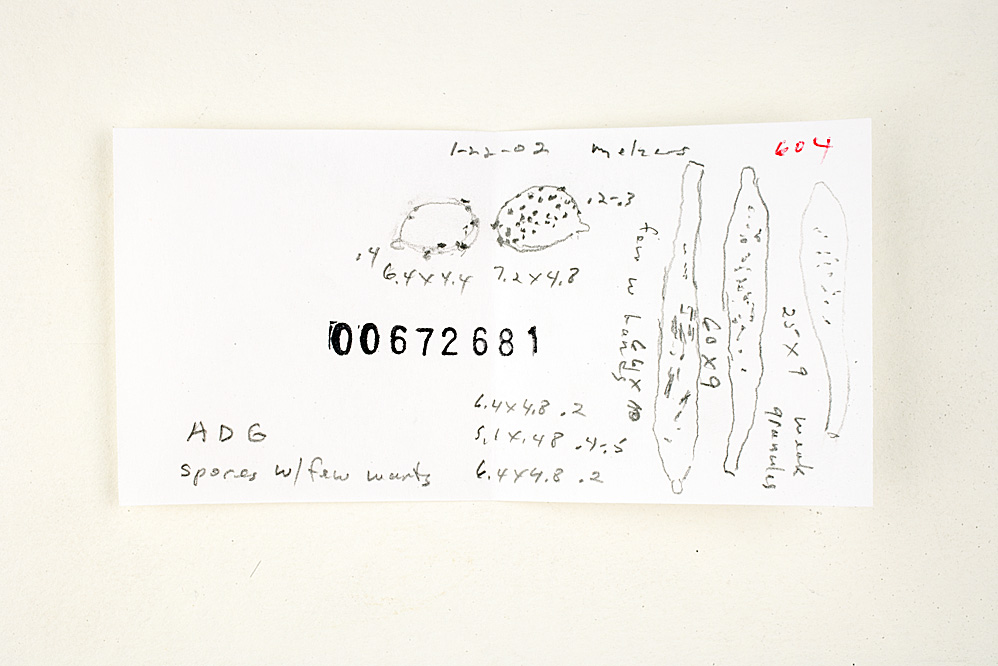 1-22-02 melzers 604
.2-.3
.4
6.4 x 4.4 7.2 x 4.8
few w bands
64 x 10
60 x 9
25 x 9
weak
granules
00672681
6.4 x 4.8 .2
5.1 x .48 .4-.5
6.4 x 4.8 .2
ADG
spores w/ few warts